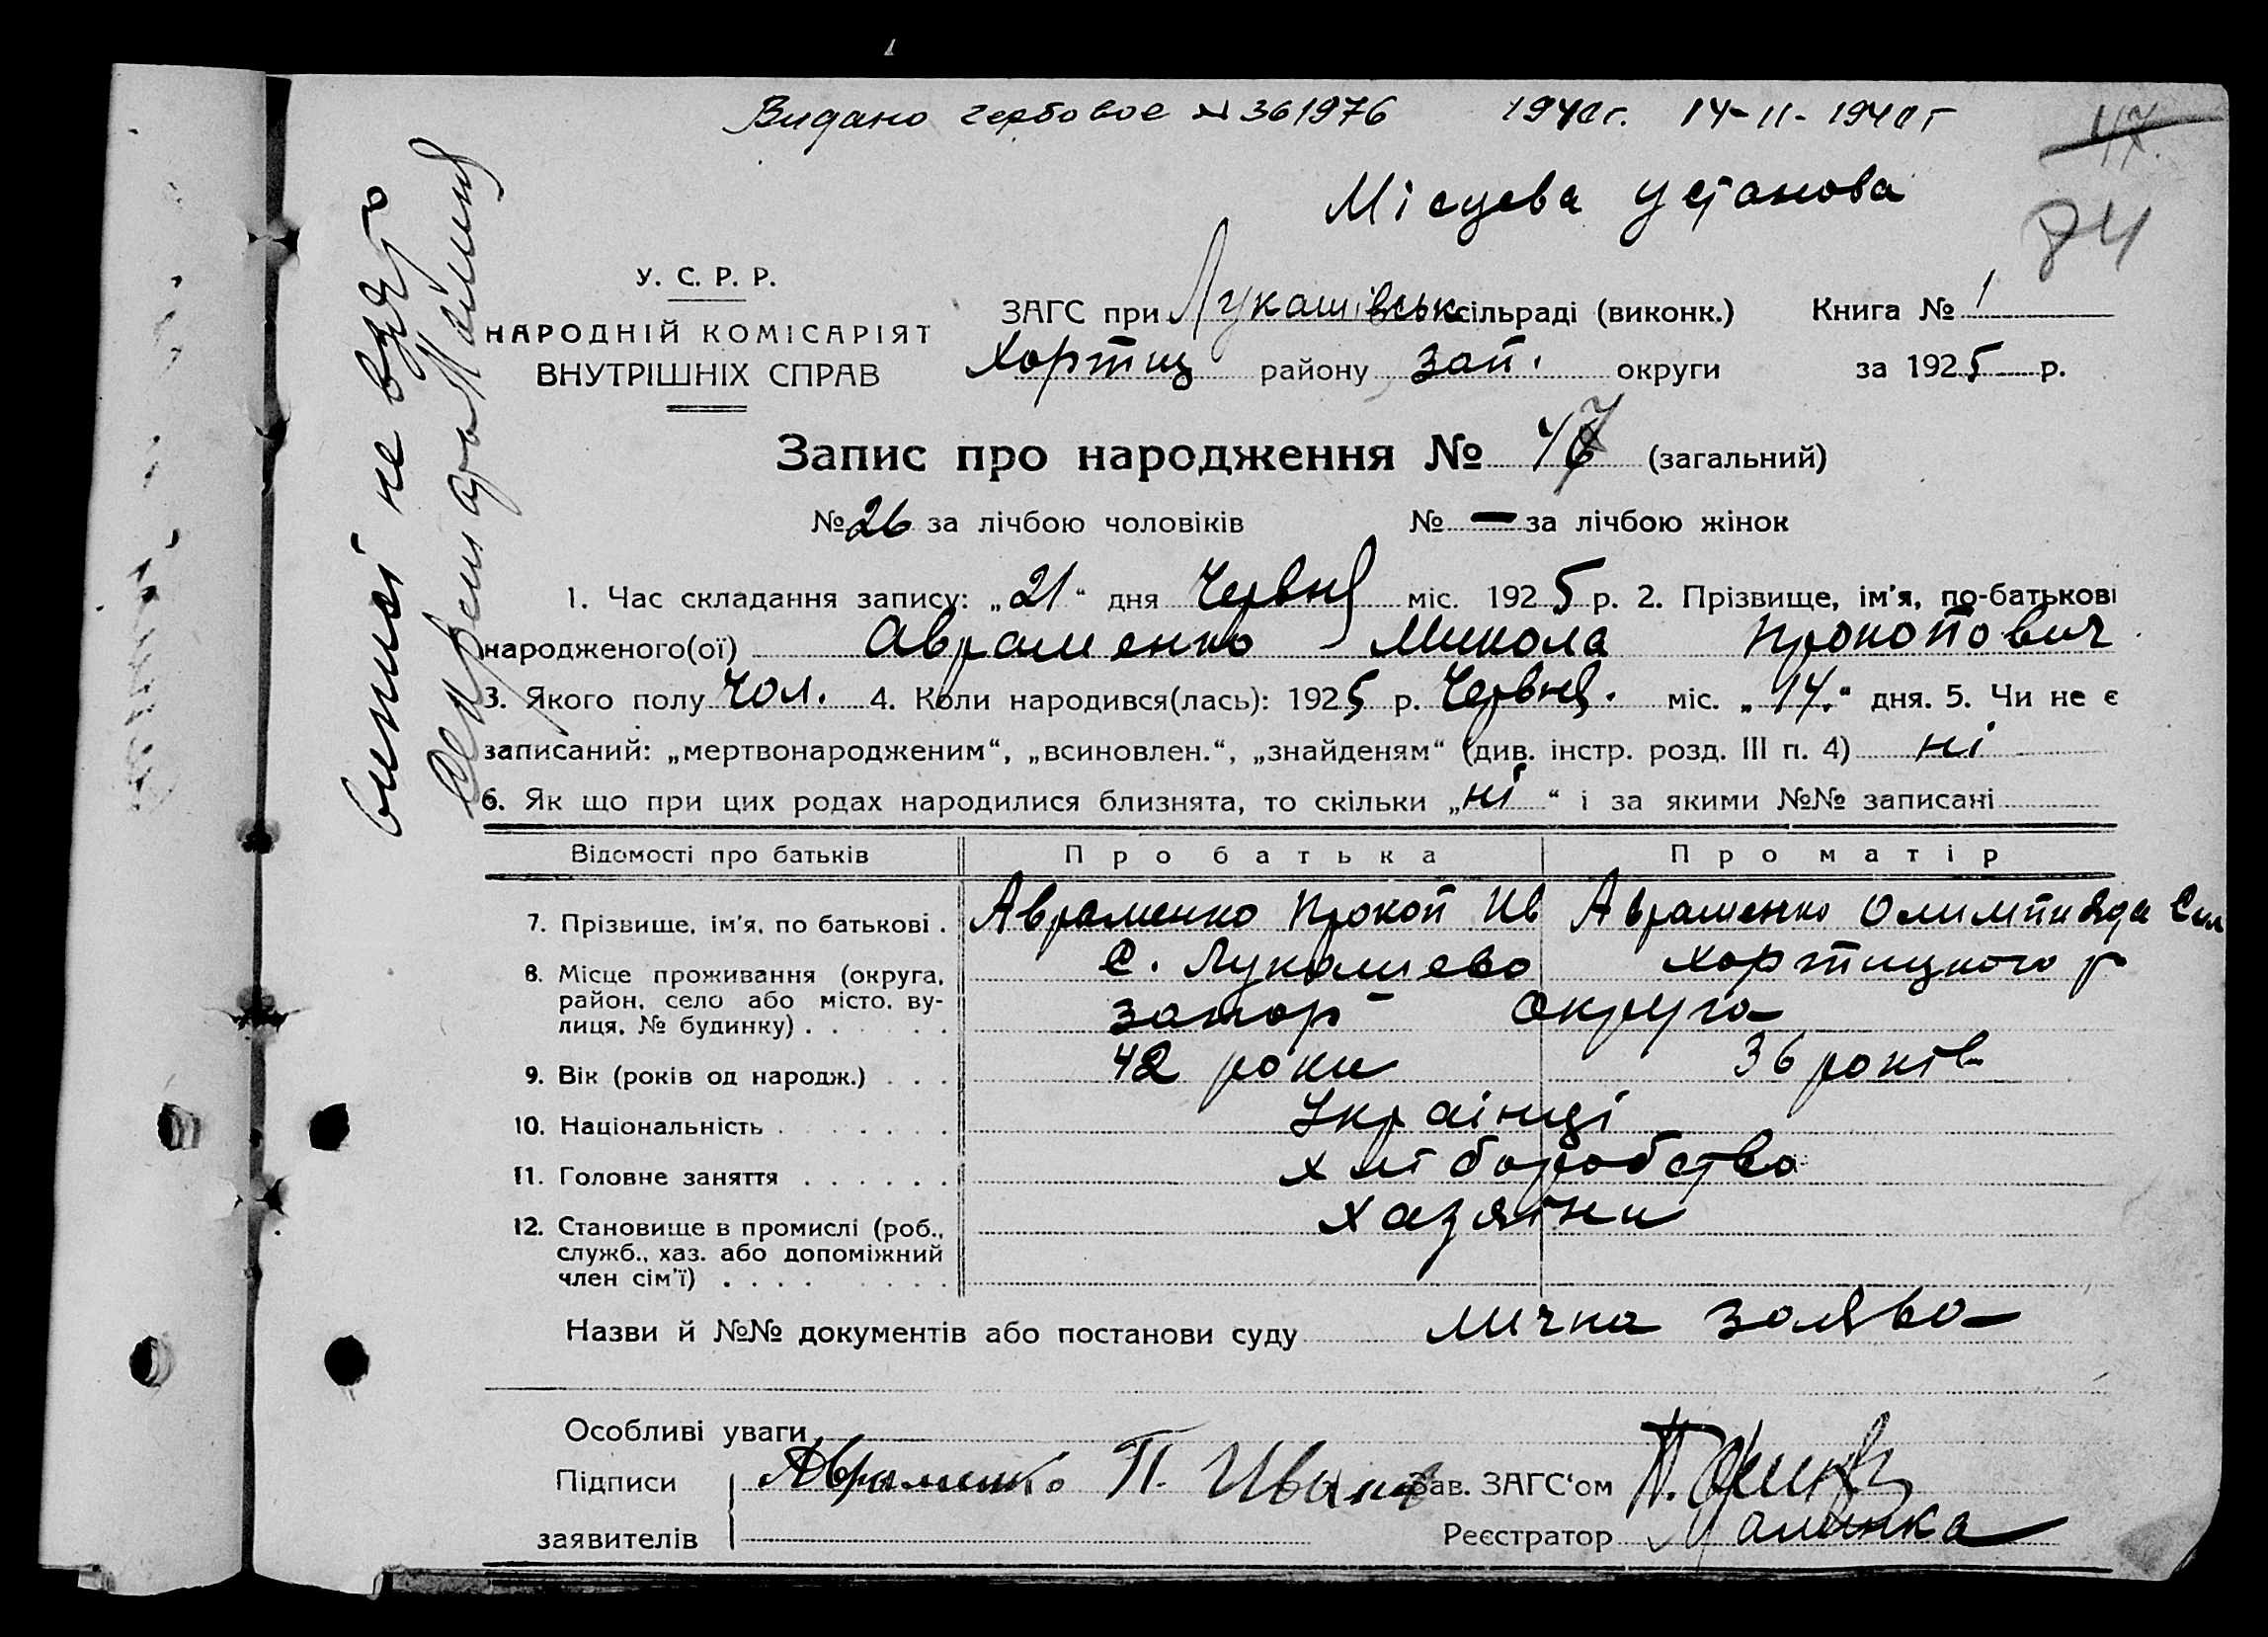 Видано гербовое № 361976 1940г. 14-11-1940г
47.
Місцева установа
74
У. С. Р. Р.
НАРОДНІЙ КОМІСАРІЯТ
ВНУТРІШНІХ СПРАВ
ЗАГС при Лукашівськ сільраді (виконк.) Книга № 1
Хортиц району Зап. округи за 1925 р.
Запис про народження № 47 (загальний)
№ 26 за лічбою чоловіків № — за лічбою жінок
1. Час складання запису: „21“ дня Червня міс. 1925 р. 2. Прізвище, ім'я, по-батькові
народженого(ої) Авраменко Микола Прокопович
3. Якого полу чол. 4. Коли народився(лась): 1925 р. Червня. міс. „14.“ дня. 5. Чи не є
записаний: „мертвонародженим“, „всиновлен.“, „знайденям“ (див. інстр. розд. III п. 4) ні
6. Як що при цих родах народилися близнята, то скільки „ні“ і за якими №№ записані
Відомості про батьків Про батька Про матір
7. Прізвище, ім'я, по батькові . Авраменко Прокоп Ив Авраменко Олимпияда
8. Місце проживання (округа, с. Лукашево Хортицкого р
район, село або місто, ву-
лиця, № будинку) . . . . . Запор округа
9. Вік (років од народж.) . . . 42 роки 36 років
10. Національність . . . . . . . Українці
11. Головне заняття . . . . . . Хліборобство
12. Становище в промислі (роб., хазяїни
служб., хаз. або допоміжний
член сім'ї) . . . . . . . . .
Назви й №№ документів або постанови суду лична заява
Особливі уваги
Підписи Авраменко П. Иван Зав. ЗАГС'ом
заявителів Реєстратор
виписі не взято